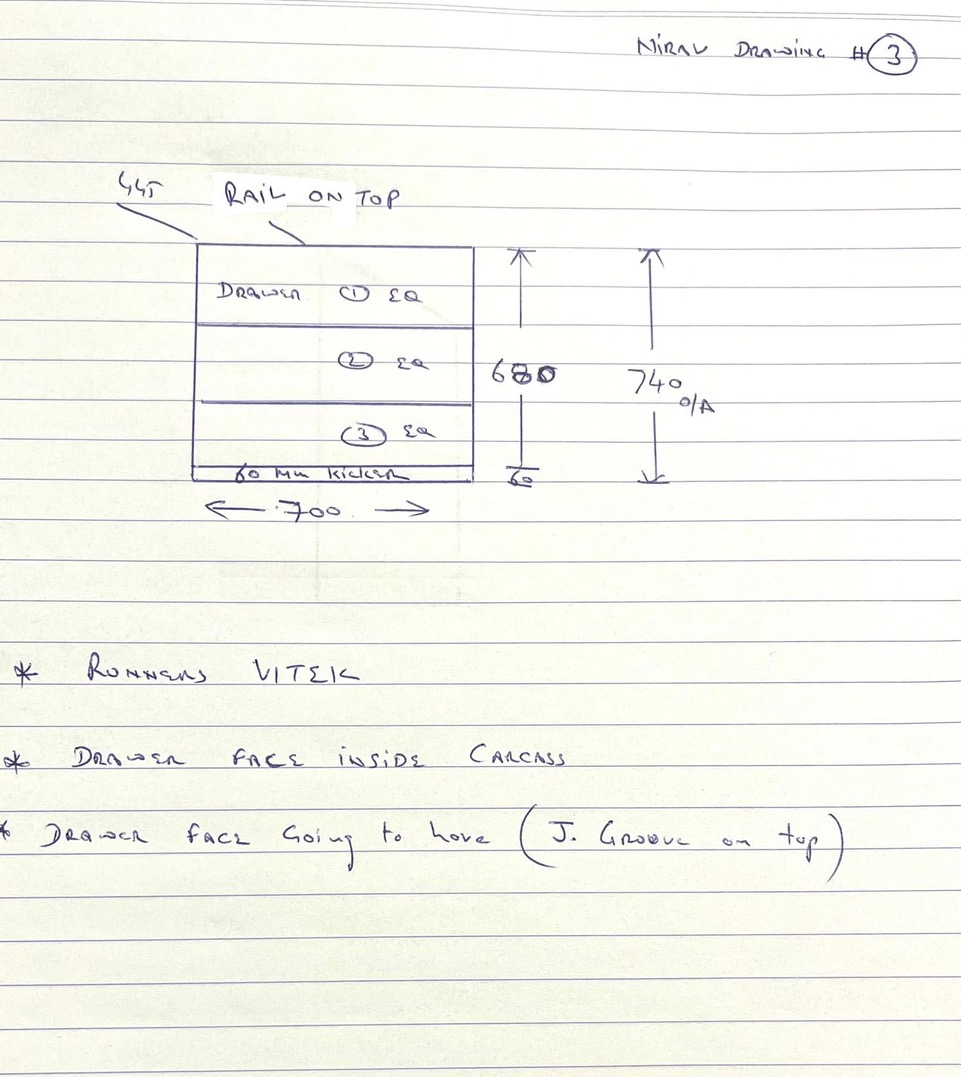 NIRAV DRAWING # 3
445 RAIL ON TOP
DRAWER 1 EQ
2 EQ
680
740 O/A
3 EQ
60 MM KICKER
60
700
* RUNNERS VITEK
* DRAWER FACE INSIDE CARCASS
* DRAWER FACE Going to have (J. GROOVE on top)